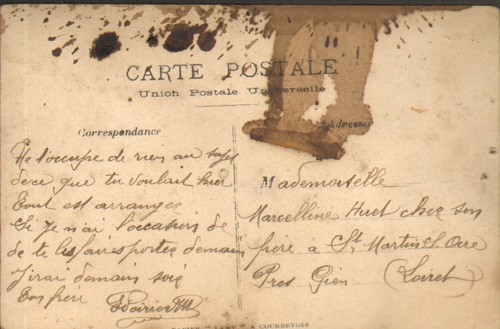 CARTE POSTALE
Union Postale Universelle
Correspondance
Adresse
Ne t'occupe de rien au sujet
de ce que tu voulait hier
tout est arrangée
Si je n'ai l'occasion de
de te les faire porter demain
J'irai demain soir
Ton frère
Mademoiselle
Marcelline Huet chez son
père à St Martin s/ Ocre
Près Gien (Loiret)
A COURBEVOIE